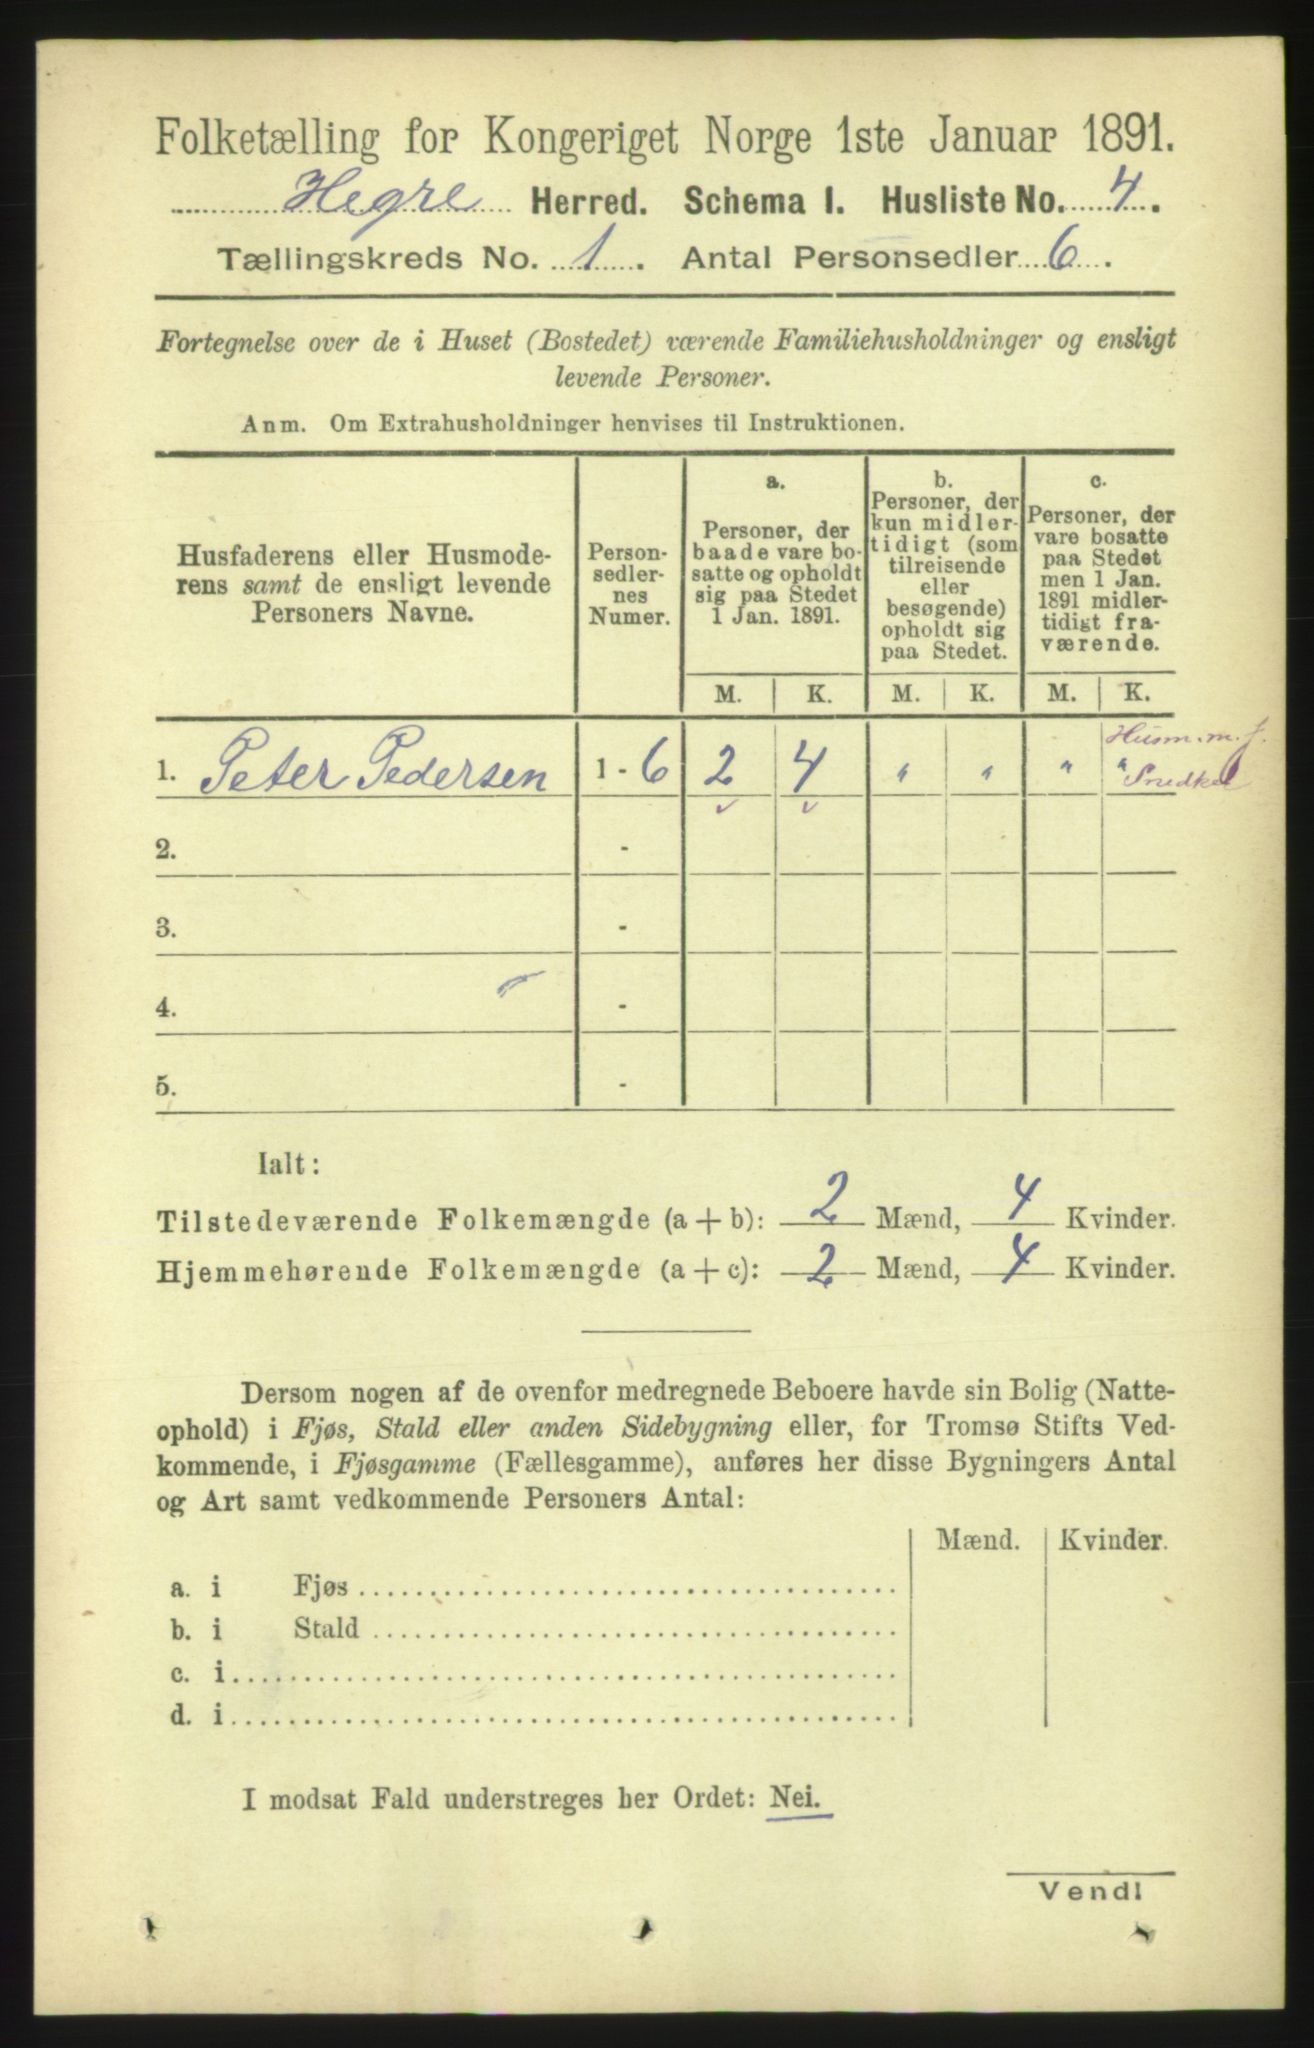 Folketælling for Kongeriget Norge 1ste Januar 1891.
Hegre Herred. Schema I. Husliste No. 4.
Tællingskreds No. 1. Antal Personsedler 6.
Fortegnelse over de i Huset (Bostedet) værende Familiehusholdninger og ensligt
levende Personer.
Anm. Om Extrahusholdninger henvises til Instruktionen.
Husfaderens eller Husmode-
rens samt de ensligt levende
Personers Navne.
Person-
sedler-
nes
Numer.
a.
Personer, der
baade vare bo-
satte og opholdt
sig paa Stedet
1 Jan. 1891.
b.
Personer, der
kun midler-
tidigt (som
tilreisende
eller
besøgende)
opholdt sig
paa Stedet.
c.
Personer, der
vare bosatte
paa Stedet
men 1 Jan.
1891 midler-
tidigt fra-
værende.
M. K. M. K. M. K.
Husm. m. j.
Snedker
1. Peter Pedersen 1 - 6 2 4 " " " "
2. -
3. -
4. -
5. -
Ialt:
Tilstedeværende Folkemængde (a + b): 2 Mænd, 4 Kvinder.
Hjemmehørende Folkemængde (a + c): 2 Mænd, 4 Kvinder.
Dersom nogen af de ovenfor medregnede Beboere havde sin Bolig (Natte-
ophold) i Fjøs, Stald eller anden Sidebygning eller, for Tromsø Stifts Ved-
kommende, i Fjøsgamme (Fællesgamme), anføres her disse Bygningers Antal
og Art samt vedkommende Personers Antal:
Mænd. Kvinder.
a. i Fjøs
b. i Stald
c. i
d. i
I modsat Fald understreges her Ordet: Nei.
Vend!